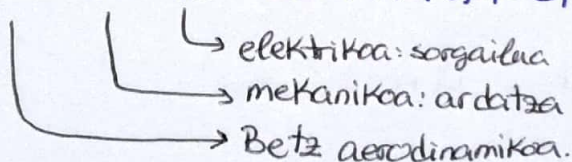 elektrikoa: sorgailua
mekanikoa: ardatza
Betz aerodinamikoa.